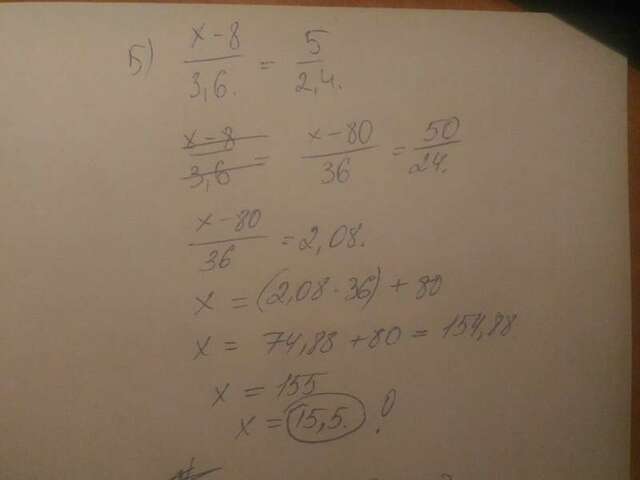 Б) (x-8)/3,6. = 5/2,4.
x-8/3,6 = (x-80)/36 = 50/24.
(x-80)/36 = 2,08.
x = (2,08·36) + 80
x = 74,88 + 80 = 154,88
x = 155
x = 15,5. ?